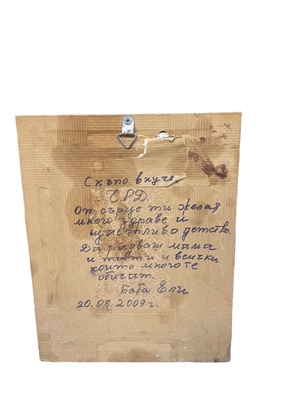 Скъпо внуче,
Ч Р Д.
От сърце ти желая
много здраве и
щастливо детство.
Да слушаш мама
и татти и всички
които много те
обичат.
Баба Ели
20.08.2009 г.